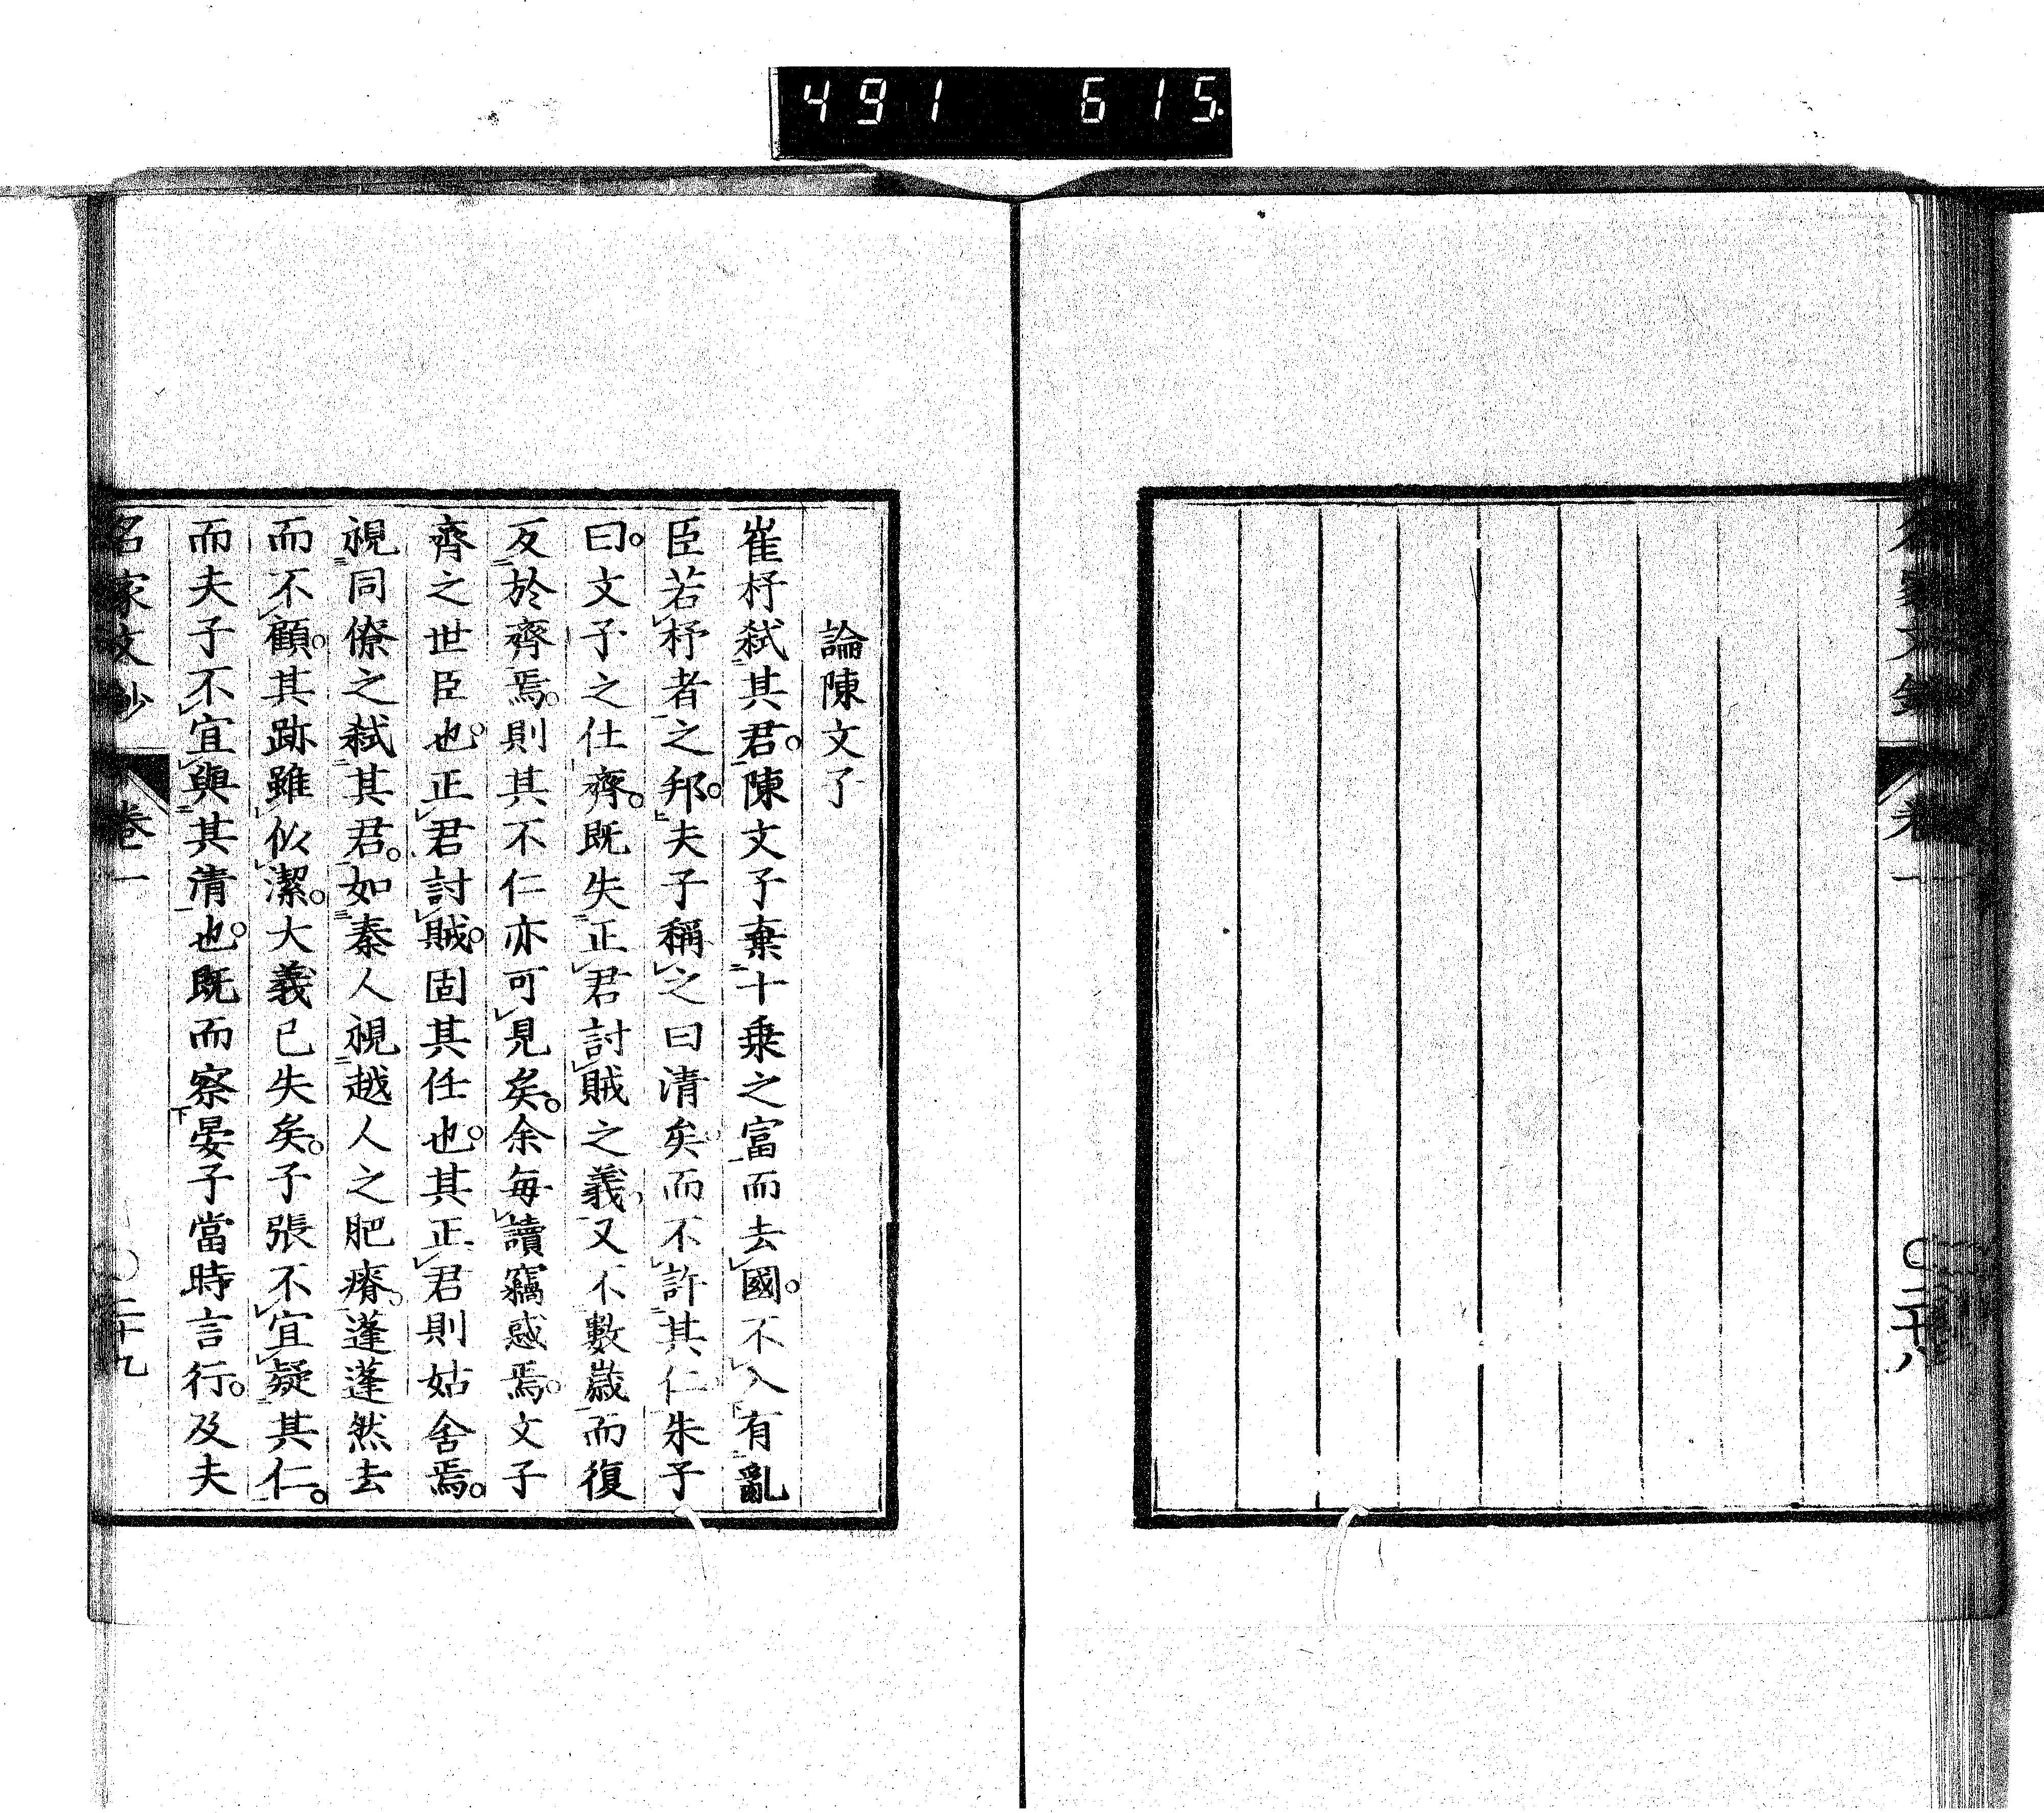 491 615
名家文鈔 卷一 〇二十八
論陳文子
崔杼弑其君。陳文子棄十乗之富而去國。不入有亂
臣若杼者之邦。夫子稱之曰清矣。而不許其仁。朱子
曰。文子之仕齊。既失正君討賊之義。又不數歳而復
反於齊焉。則其不仁亦可見矣。余毎讀竊惑焉。文子
齊之世臣也。正君討賊。固其任也。其正君則姑舍焉。
視同僚之弑其君。如秦人視越人之肥瘠。蓬蓬然去
而不顧。其跡雖似潔。大義已失矣。子張不宜疑其仁。
而夫子不宜與其清也。既而察晏子當時言行。及夫
名家文鈔 卷一 〇二十九